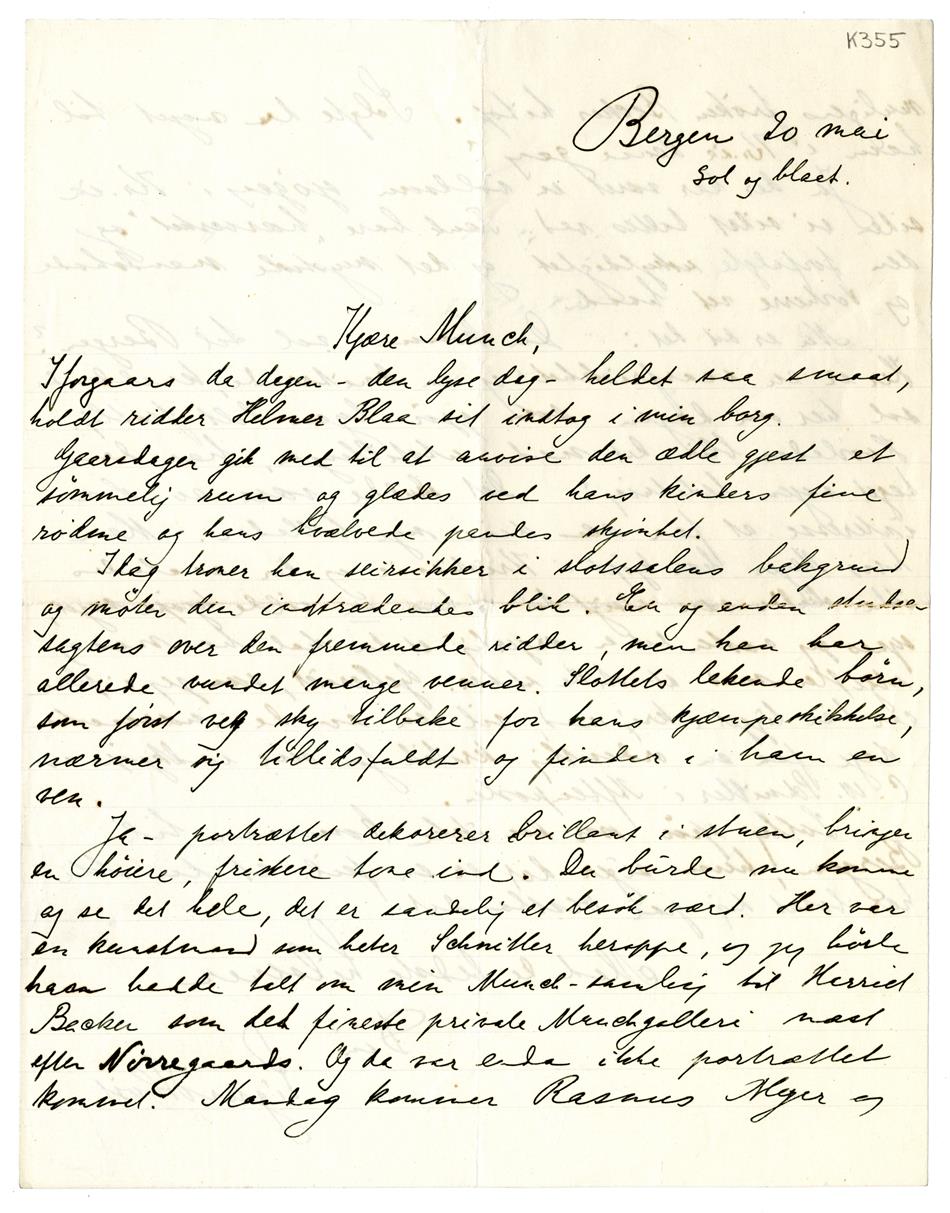 K355
Bergen 20 mai
Sol og blaat.
Kjære Munch,
Iforgaars da dagen – den lyse dag – heldet saa smaat,
holdt ridder Helmer Blaa sit indtog i min borg.
Gaarsdagen gik med til at anvise den ædle gjest et
sømmelig rum og glædes ved hans kinders fine
rødme og hans hvælvede pandes skjønhet.
Idag troner han seirsikker i slotssalens bakgrund
og møter den indtrædendes blik. En og anden
sagtens over den fremmede ridder, men han har
allerede vundet mange venner. Slottets lekende børn,
som først vek sky tilbake for hans kjæmpeskikkelse,
nærmer sig tillidsfuldt og finder i ham en
ven.
Ja – portrættet dekorerer brillant i stuen, bringer
en høiere, friskere tone ind. Du burde nu komme
og se det hele, det er sandelig et besøk værd. Her var
en kunstmand som heter Schnitler heroppe, og jeg hørte
han hadde talt om min Munch-samling til Harriet
Backer som det fineste private Munchgalleri næst
efter Nørregaards. Og da var enda ikke portrættet
kommet. Mandag kommer Rasmus Meyer og